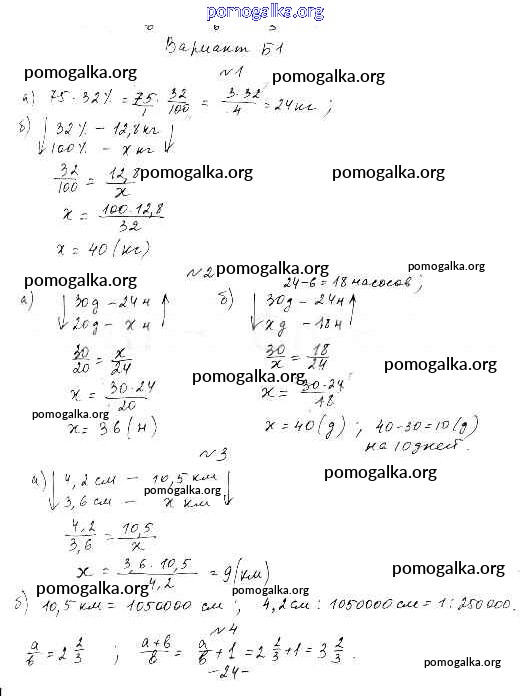 pomogalka.org
Вариант Б1
pomogalka.org
№1
pomogalka.org
а) 75 · 32% = 75/1 · 32/100 = 3·32/4 = 24 кг ;
б) ↓ 32% – 12,8 кг ↓
100% – x кг
32/100 = 12,8/x
pomogalka.org
pomogalka.org
x = 100·12,8/32
x = 40 (кг)
№2
pomogalka.org
pomogalka.org
pomogalka.org
24–6 = 18 насосов ;
а) ↓ 30д – 24н ↑
20д – x н
б) ↓ 30д – 24н ↑
xд – 18н
30/20 = x/24
30/x = 18/24
pomogalka.org
pomogalka.org
x = 30·24/20
x = 30·24/18
pomogalka.org
x = 36 (н)
x = 40 (д) ; 40–30=10 (д)
на 10 дней.
№3
pomogalka.org
а) ↓ 4,2 см – 10,5 км ↓
3,6 см – x км
pomogalka.org
4,2/3,6 = 10,5/x
x = 3,6·10,5/4,2 = 9 (км)
pomogalka.org
pomogalka.org
б) 10,5 км = 1050000 см ; 4,2 см : 1050000 см = 1 : 250000.
№4
a/b = 2 2/3 ; a+b/b = a/b + 1 = 2 2/3 + 1 = 3 2/3 .
pomogalka.org
-24-